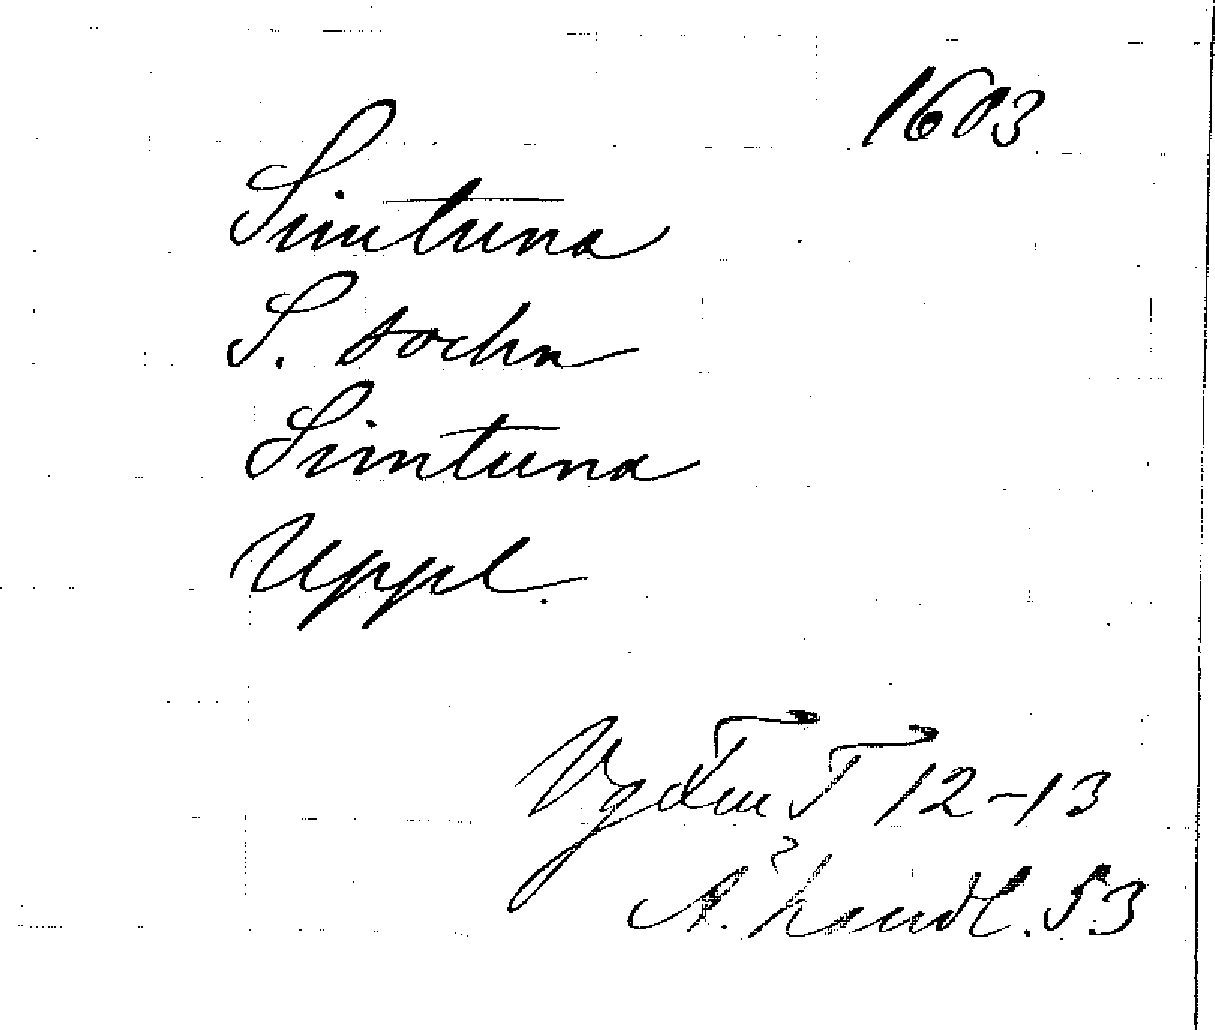 1603
Simtuna
S. sockn
Simtuna
Uppl.
T 12-13
handl. 53